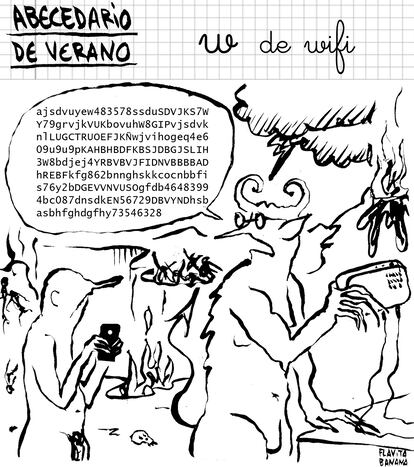 ABECEDARIO
DE VERANO
w de wifi
ajsdvuyew483578ssduSDVJKS7W
Y79grvjkVUKbovuhW8GIPvjsdvk
nlLUGCTRUOEFJKÑwjvihogeq4e6
09u9u9pKAHBHBDFKBSJDBGJSLIH
3W8bdjej4YRBVBVJFIDNVBBBBAD
hREBFkfg862bnnghskkcocnbbfi
s76y2bDGEVVNVUSOgfdb4648399
4bc087dnsdkEN56729DBVYNDhsb
asbhfghdgfhy73546328
FLAVITA
BANANA